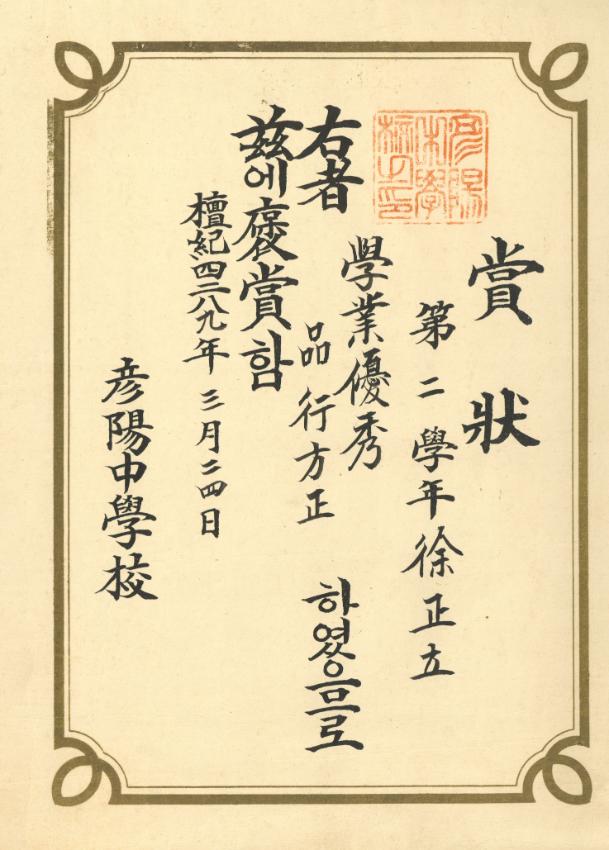 賞狀
第二學年 徐正立
右者
學業優秀
品行方正
하였으므로
玆에褒賞함
檀紀四二八九年 三月二四日
彦陽中學校